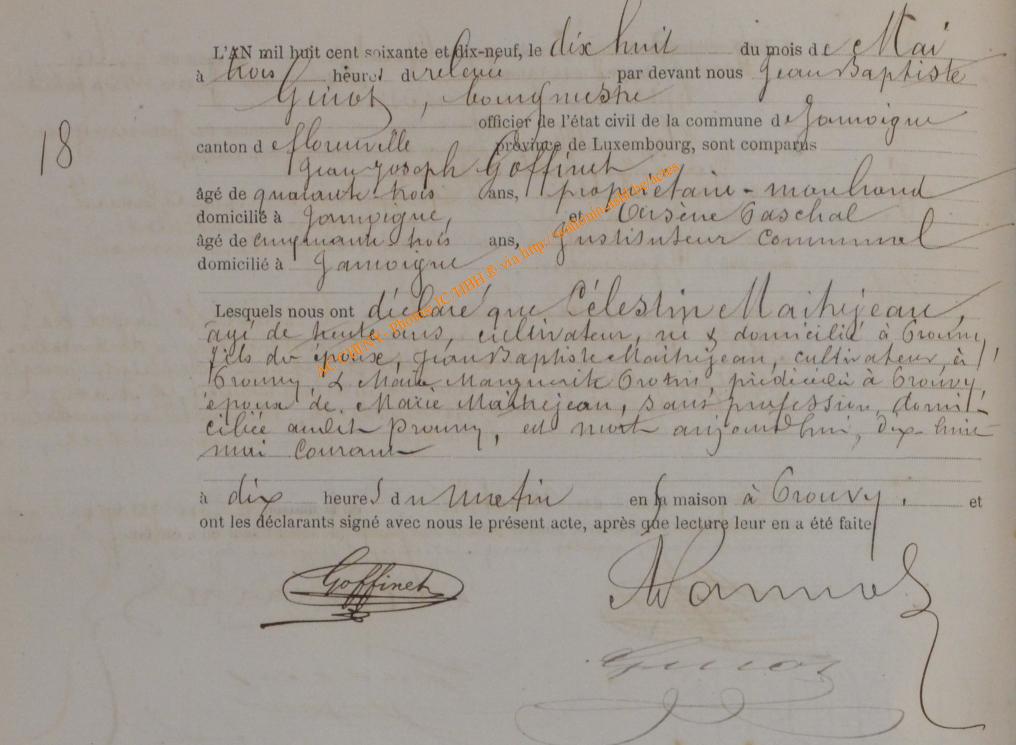 L'AN mil huit cent soixante et dix-neuf, le dix huit du mois de Mai
à trois heures de relevée par devant nous Jean Baptiste
Guiot, bourgmestre
officier de l'état civil de la commune de Jamoigne
18
canton de Florenville province de Luxembourg, sont comparus
Jean Joseph Goffinet
âgé de quarante-trois ans, propriétaire-marchand
domicilié à Jamoigne, et Arsène
âgé de cinquante trois ans, Instituteur communal
domicilié à Jamoigne
Lesquels nous ont déclaré que Célestin Maithéjean,
agé de trente ans, cultivateur, né & domicilié à Prouvy,
fils des époux, Jean Baptiste Maithéjean, cultivateur à
Prouvy, & Marie Marguerite prédécédée à Prouvy
époux de Marie Maithéjean, sans profession, domi-
ciliée audit Prouvy, est mort aujourd'hui, dix-huit
mai courant
à dix heures du matin en sa maison à Prouvy. et
ont les déclarants signé avec nous le présent acte, après que lecture leur en a été faite
Goffinet
Guiot